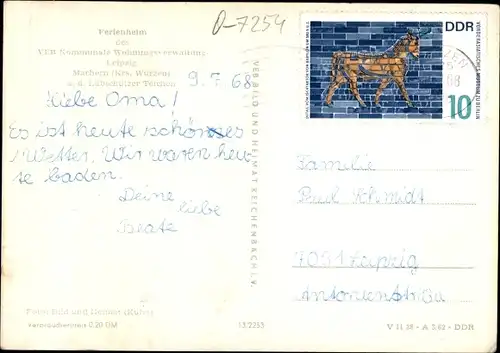 D-7254
Ferienheim
des
VEB Kommunale Wohnungsverwaltung
Leipzig
Machern (Krs. Wurzen)
a. d. Lübschützer Teichen
9. 7. 68
Liebe Oma!
Es ist heute schönes
Wetter. Wir waren heu-
te baden.
Deine
liebe
Beate
Foto: Bild und Heimat
Verbraucherpreis 0,20 DM
13/2253
VEB BILD UND HEIMAT REICHENBACH I. V.
DDR
10
68
Familie
Paul Schmidt
7051 Leipzig
V 11 28 - A 3/62 - DDR